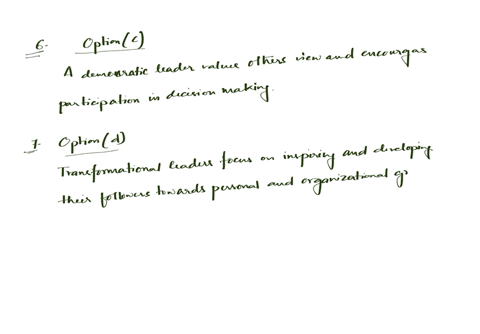 6. Option (c)
A democratic leader values others view and encourgas
participation in decision making.
7. Option (d)
Transformational leaders focus on inspiring and developing
their followers towards personal and organizational go